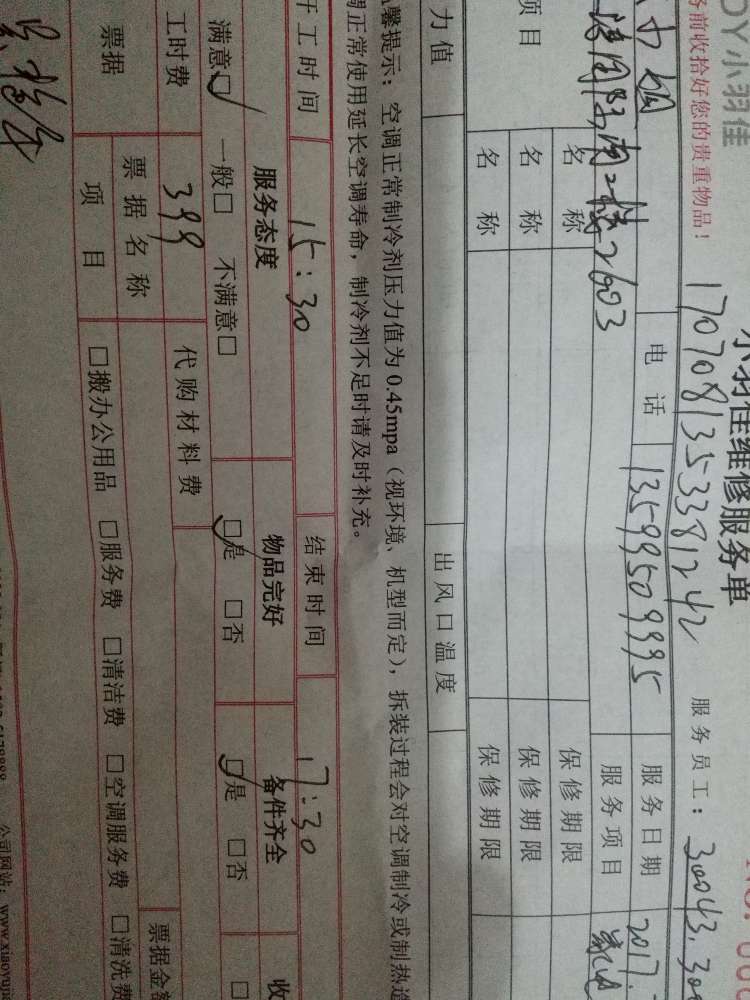 DY小羽佳
小羽佳维修服务单
务前收拾好您的贵重物品!
1707081353381242
服务员工: 30043.300
电话 13599509995 服务日期 2017.
2603 服务项目
项目 名称 保修期限
名称 保修期限
名称 保修期限
力值 出风口温度
温馨提示: 空调正常制冷剂压力值为 0.45mpa (视环境、机型而定), 拆装过程会对空调制冷或制热造
调正常使用延长空调寿命, 制冷剂不足时请及时补充。
开工时间 15:30 结束时间 17:30
服务态度 物品完好 备件齐全 收
满意□ 一般□ 不满意□ □是 □否 □是 □否 □
工时费 399 代购材料费
票据 票据名称 票据金额
项目 □搬办公用品 □服务费 □清洁费 □空调服务费 □清洗费
公司网站: www.xiaoyujia